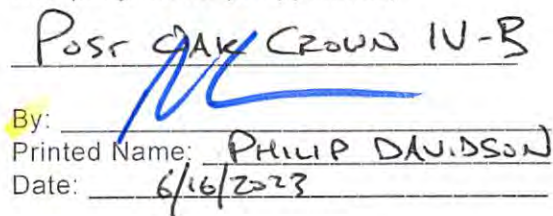 POST OAK CROWN IV-B
By:
Printed Name: PHILIP DAVIDSON
Date: 6/16/2023